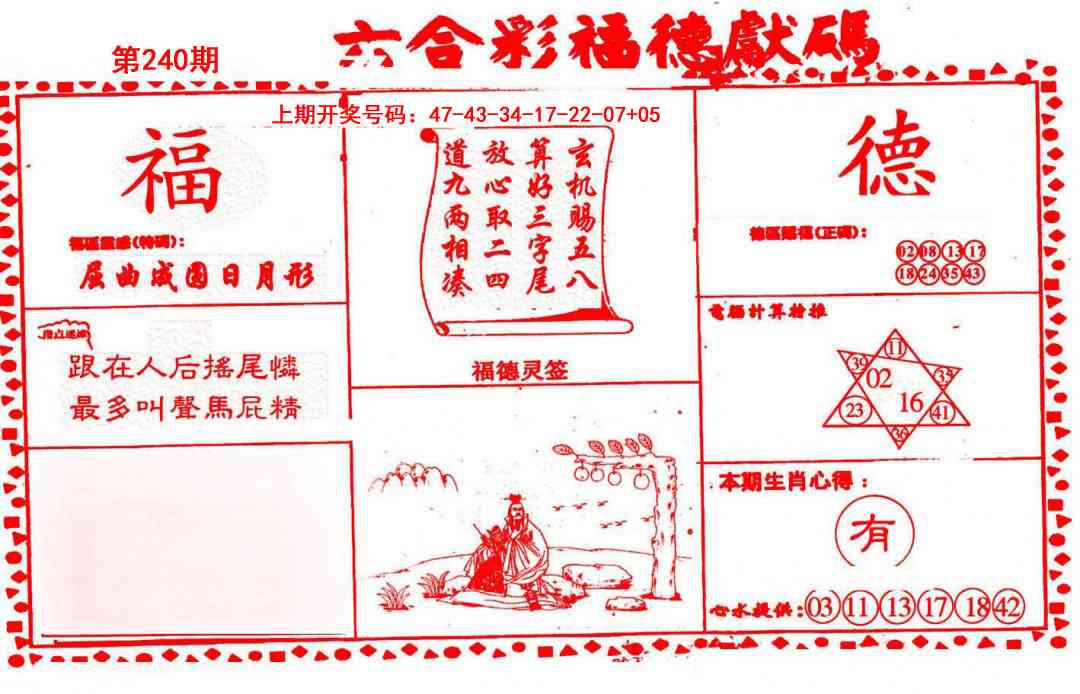 六合彩福德獻碼
第240期
上期开奖号码：47-43-34-17-22-07+05
福
屈曲成圆日月形
跟在人后摇尾憐
最多叫聲馬屁精
玄机赐五八
算好三字尾
放心取二四
道九两相凑
福德灵签
德
02 08 13 17
18 24 35 43
電腦計算特推
11
39
35
02
16
23
41
36
本期生肖心得：
有
心水提供：03 11 13 17 18 42